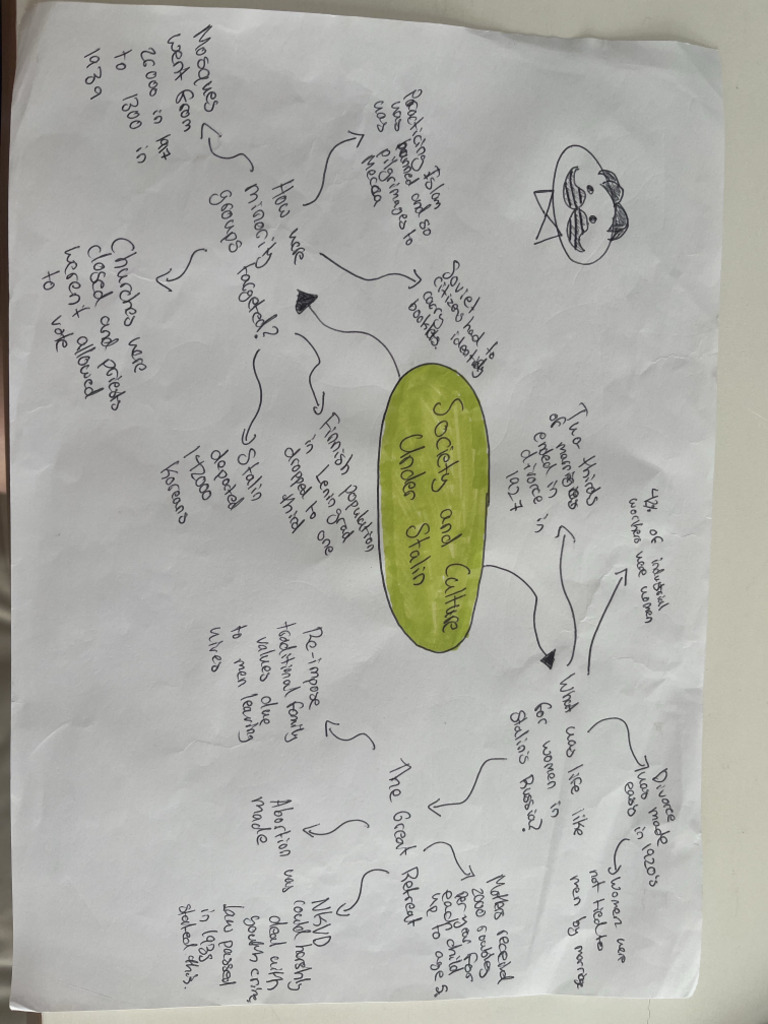 Society and Culture
Under Stalin
How were
minority
groups targeted?
Mosques
went from
26000 in 1917
to 1300 in
1939
Practicing Islam
was banned and so
was pilgrimages to
Mecca
Soviet
citizens had to
carry identity
booklets.
Churches were
closed and priests
weren't allowed
to vote
Stalin
deported
142000
Koreans
Finnish population
in Leningrad
dropped to one
third
What was life like
for women in
Stalin's Russia?
Two thirds
of marriages
ended in
divorce in
1927
of industrial
workers were women
Divorce
was made
in 1920's
women were
not tied to
men by marriage
The Great Retreat
Re-impose
traditional family
values due
to men leaving
wives
Abortion was
made
NKVD
could harshly
deal with
youth crime,
law passed
in 1935
stated this.
received
2000 roubles
per year for
each child
up to age 5